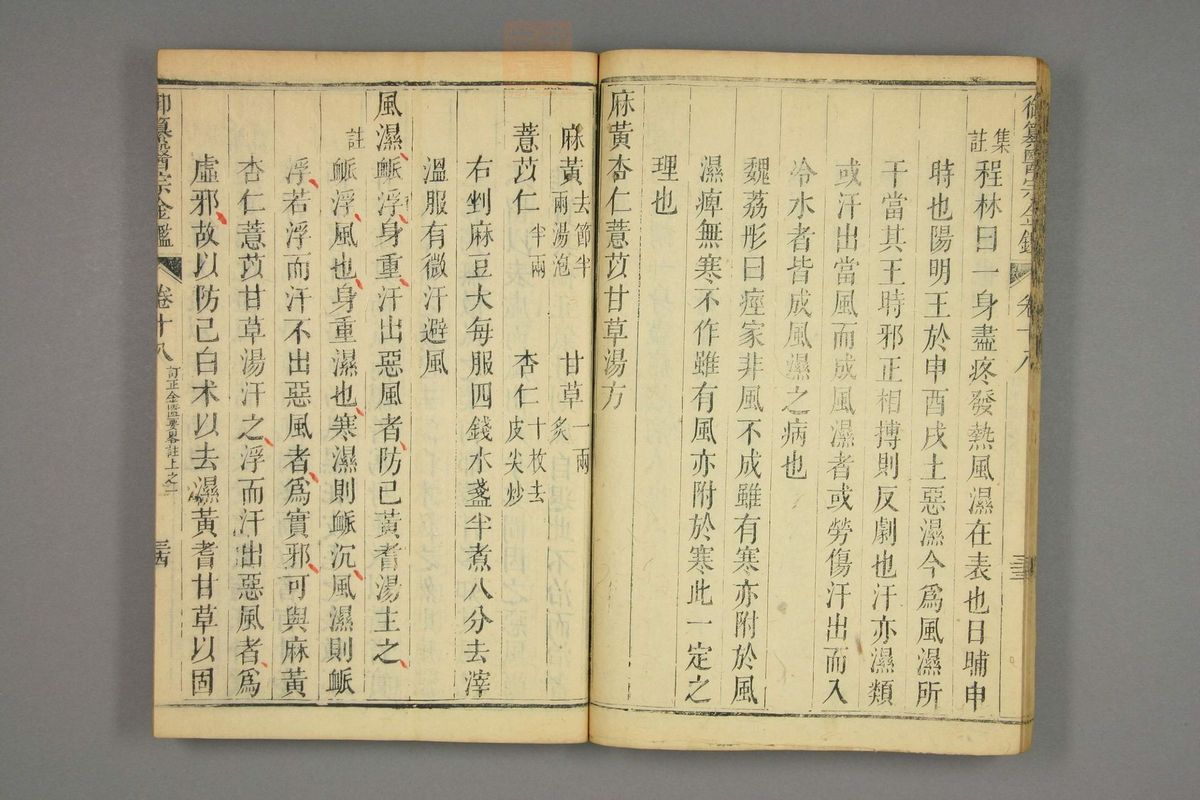 御纂醫宗金鑑 卷十八
集註 程林曰一身盡疼發熱風濕在表也日晡申
時也陽明王於申酉戌土惡濕今爲風濕所
干當其王時邪正相搏則反劇也汗亦濕類
或汗出當風而成風濕者或勞傷汗出而入
冷水者皆成風濕之病也
魏荔彤曰痙家非風不成雖有寒亦附於風
濕痺無寒不作雖有風亦附於寒此一定之
理也
麻黃杏仁薏苡甘草湯方
麻黃 去節半兩湯泡 甘草 一兩炙
薏苡仁 半兩 杏仁 十枚去皮尖炒
右剉麻豆大每服四錢水盞半煮八分去滓
溫服有微汗避風
風濕脈浮身重汗出惡風者防己黃耆湯主之
註 脈浮風也身重濕也寒濕則脈沉風濕則脈
浮若浮而汗不出惡風者爲實邪可與麻黃
杏仁薏苡甘草湯汗之浮而汗出惡風者爲
虛邪故以防己白朮以去濕黃耆甘草以固
御纂醫宗金鑑 卷十八 訂正金匱要畧註上之一